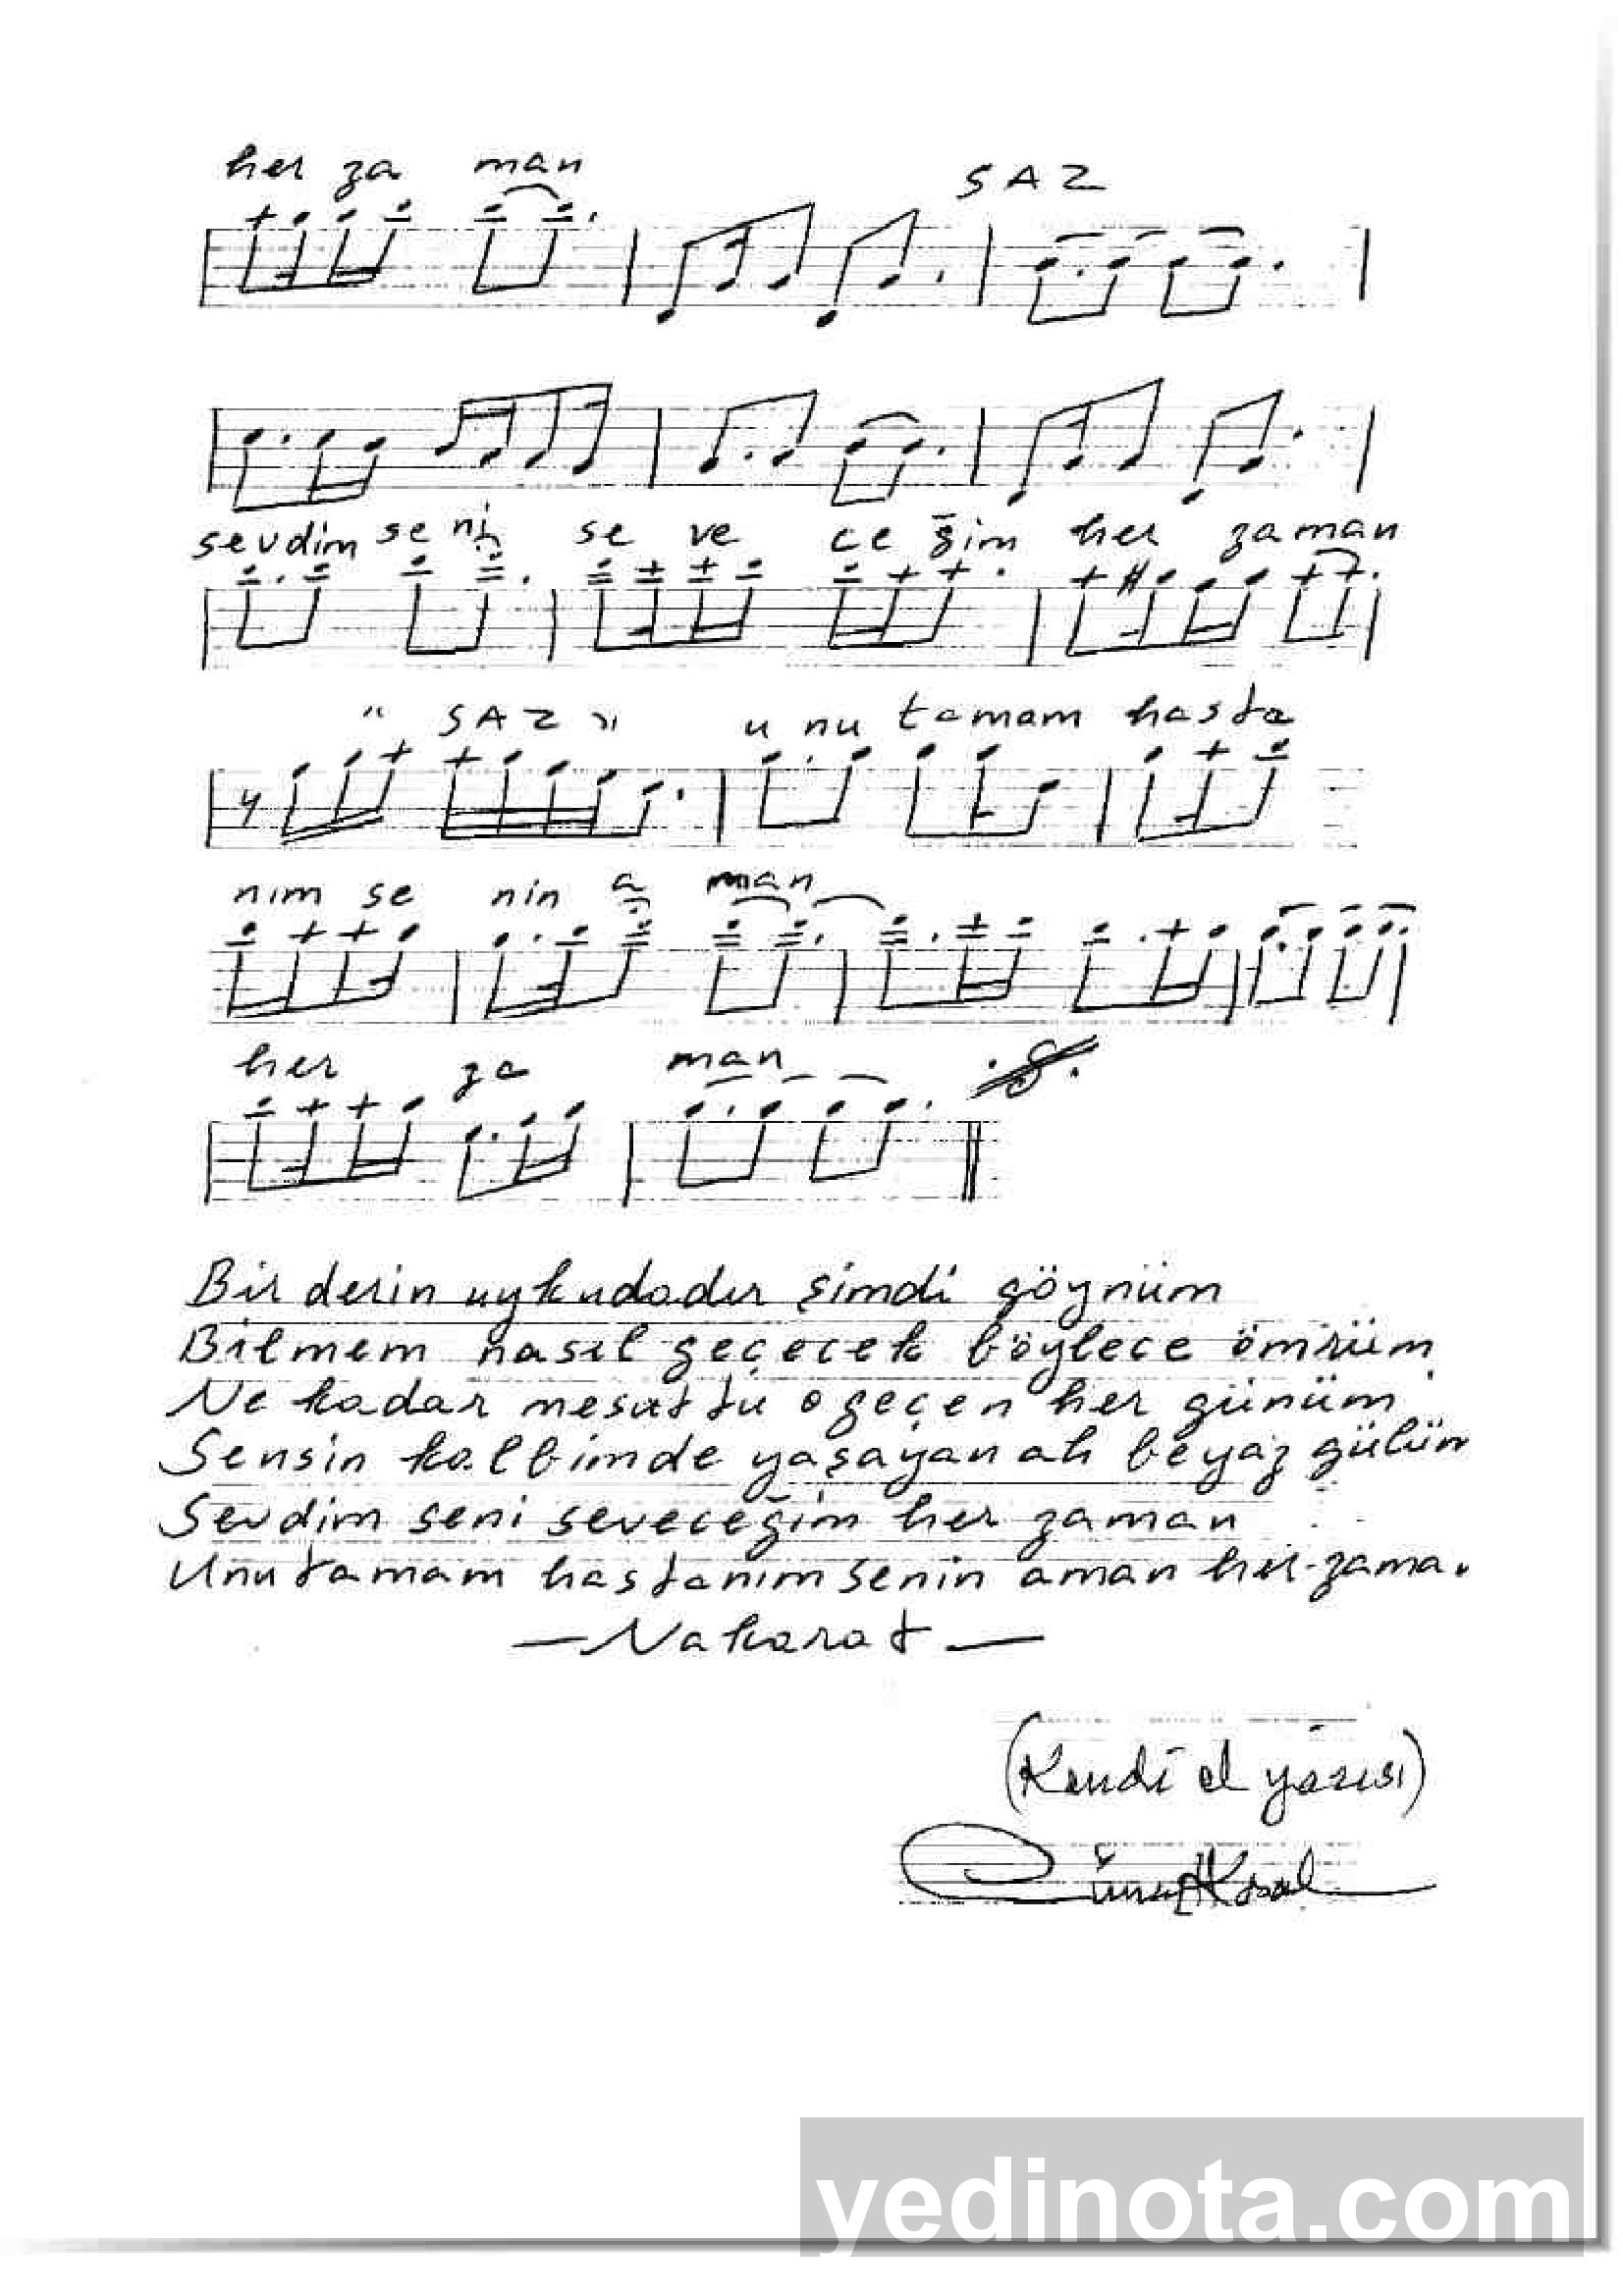 her za man SAZ
sevdim se ni se ve ce ğim her zaman
" SAZ " u nu tamam hasta
nım se nin a man
her za man
Bir derin uykudadır şimdi göynüm
Bilmem nasıl geçecek böylece ömrüm
Ne kadar mesuttu o geçen her günüm
Sensin kalbimde yaşayan ah beyaz gülüm
Sevdim seni seveceğim her zaman
Unutamam hastanım senin aman her zama
—Nakarat—
(Kendi el yazısı)
yedinota.com